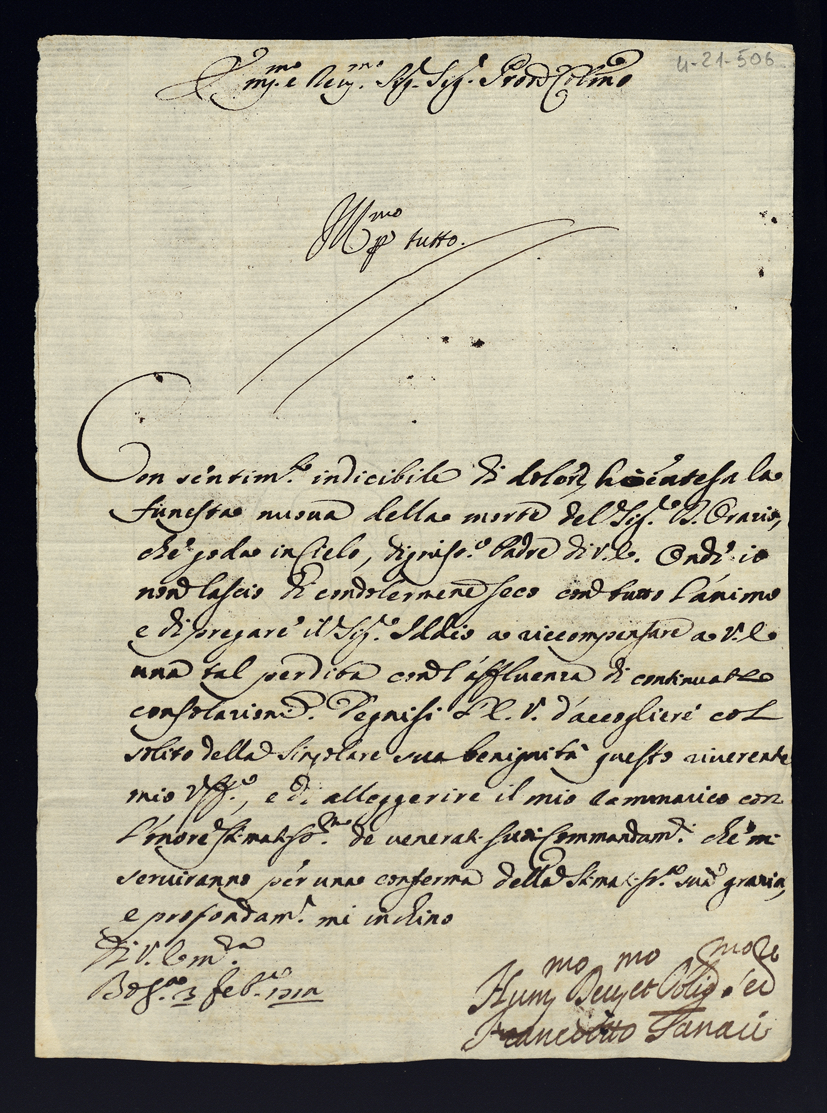 4-21-506
Em.mo e Rev.mo Sig. Sig. Pron Col.mo
per tutto.
Con sentim.to indicibile di dolore hò intesa la
funesta nuova della morte del Sig.r B. Orazio,
che goda in Cielo, digniss.o Padre di V. E. Ond'io
non lascio di condolermene seco con tutto l'animo
e di pregare il Sig.r Iddio a riccompensare a V. E.
una tal perdita con l'affluenza di continuate
consolazioni. Degnisi l'E. V. d'accogliere col
solito della singolare sua benignità questo riverente
mio Uff.o, e di alleggerire il mio ramarico con
l'onore stimatiss.mo de venerat. suoi Commandam.ti che mi
serviranno per una conferma della stimatiss.a sua grazia,
e profondam.te mi inchino
Di V. Em.za
3 Feb.ro
Hum. Dev. et Oblig. Ser
Francesco Tanari